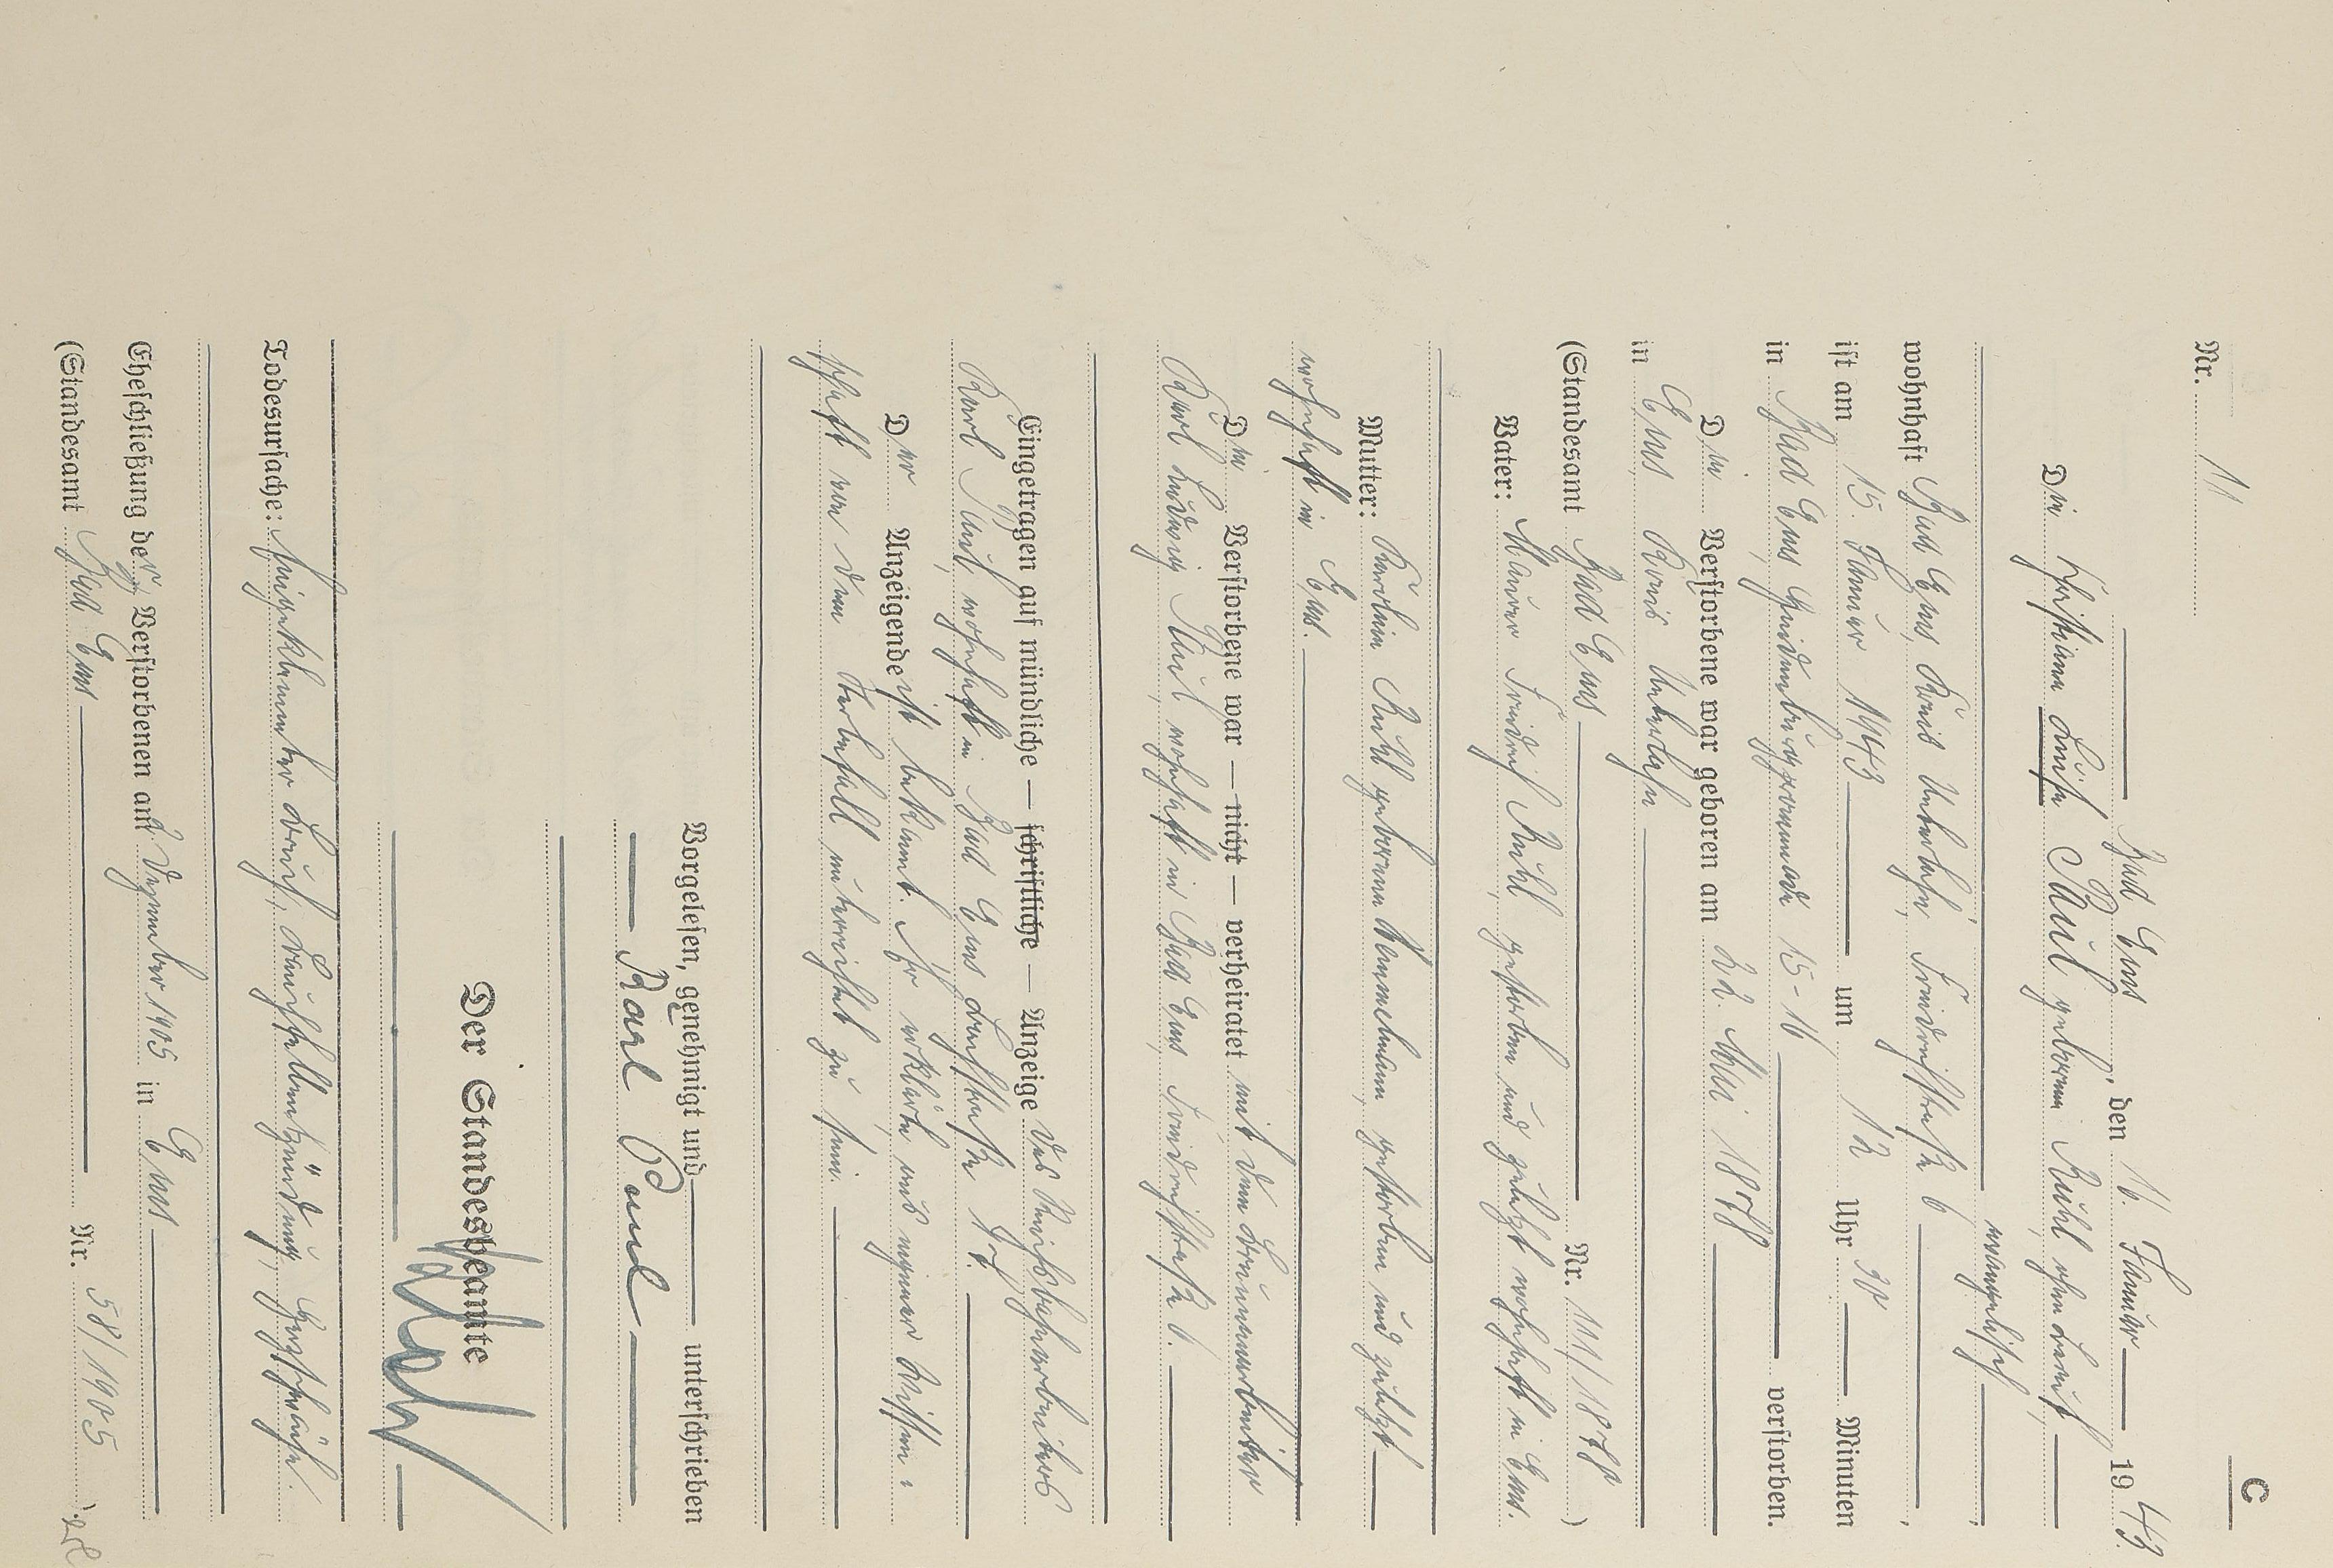 C
Nr. 11
Bad Ems, den 16. Januar 1943.
Die Christiane Luise Paul geborene Rühl, ohne Beruf,
evangelisch
wohnhaft Bad Ems, Kreis Unterlahn, Friedrichstraße 6
ist am 15. Januar 1943 um 12 Uhr 30 Minuten
in Bad Ems, Hindenburgpromenade 15-16 verstorben.
Die Verstorbene war geboren am 22. Mai 1878
in Ems Kreis Unterlahn
(Standesamt Bad Ems Nr. 111/1878)
Vater: Maurer Friedrich Rühl, gestorben und zuletzt wohnhaft in Ems.
Mutter: Karoline Rühl geborene, gestorben und zuletzt
wohnhaft in Ems.
Die Verstorbene war — nicht — verheiratet mit dem Brunnenarbeiter
Karl Ludwig Paul, wohnhaft in Bad Ems, Friedrichstraße 6.
Eingetragen auf mündliche — schriftliche — Anzeige des Reichsbahnarbeiters
Karl Paul, wohnhaft in Bad Ems
Der Anzeigende ist bekannt. Er erklärte, aus eigener Wissen-
schaft von dem Sterbefall unterrichtet zu sein.
Vorgelesen, genehmigt und unterschrieben
Karl Paul
Der Standesbeamte
Todesursache: Eingeklemmter Bruch, Bauchfellentzündung, Herzschwäche.
Eheschließung der Verstorbenen am Dezember 1905 in Ems
(Standesamt Bad Ems Nr. 58/1905)